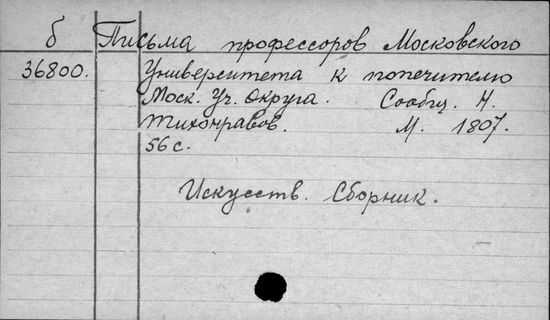 б Письма профессоров Московского
36800. Университета к попечителю
Моск. Уч. Округа. Сообщ. Н.
Тихонравов. М. 1807.
56 с.
Искусств. Сборник.